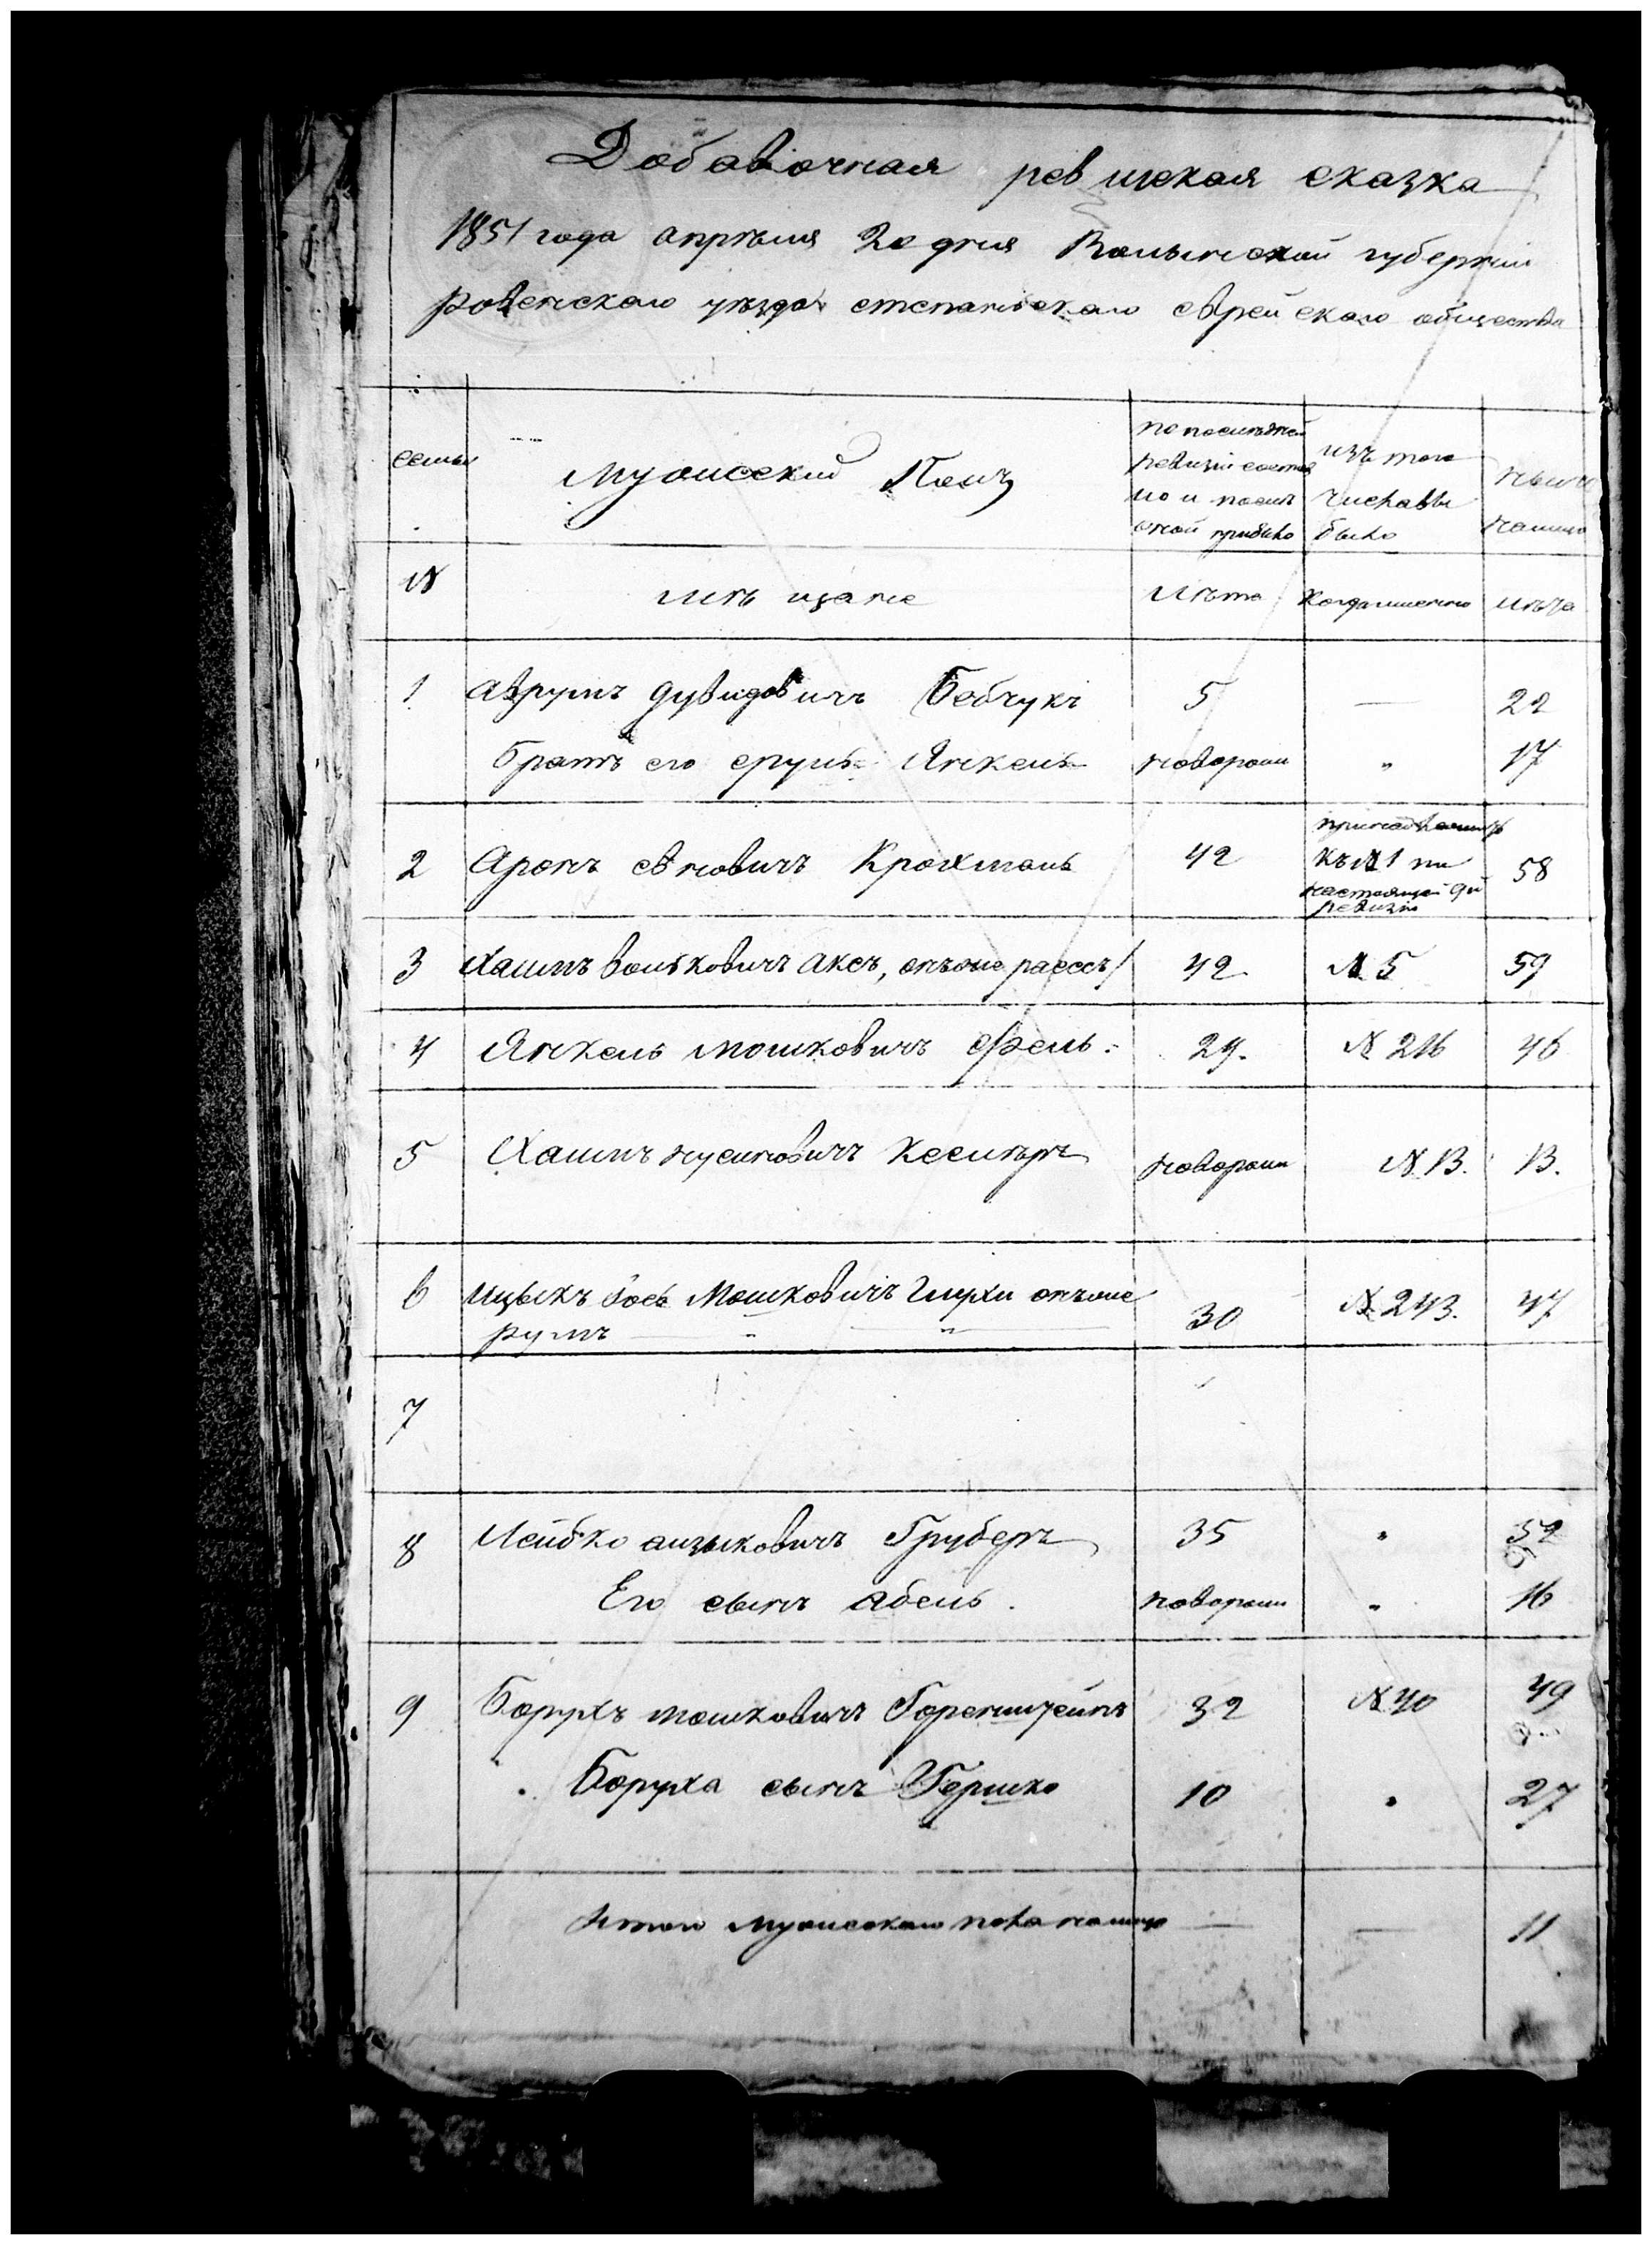 Добавочная ревизская сказка
1851 года апреля 20 дня Волынской губернии
ровенского уезда степаньского еврейского общества
семьи
Мужеский Полъ
по последней
ревизіи состоя
ло и после
оной прибыло
изъ того
числа вы
было
ныне
налицо
№
мѣщане
Лѣта
Когда именно
Лѣта
1 Аврумъ дувидовичъ Бебчукъ 5 — 22
братъ его срулъ Янкель новорож „ 17
2 Аронъ Крохмаль 42 58
къ № 1 по
настоящей 9й
ревизіи
3 Хаимъ вольковичъ Аксъ, 42 № 5 59
4 Янкель мошковичъ 29. № 216 46
5 Хаимъ нусиновичъ новорож № 13. 13.
6 Ицыкъ Мошковичъ онъже 30 № 243. 47
7
8 Лейбко аизыковичъ Груберъ 35 „ 52
Его сынъ абель. новорож „ 16
9 Борухъ мошковичъ Горенштейнъ 32 № 40 49
Боруха сынъ Гершко 10 „ 27
Итого мужескаго пола налицо — — 11